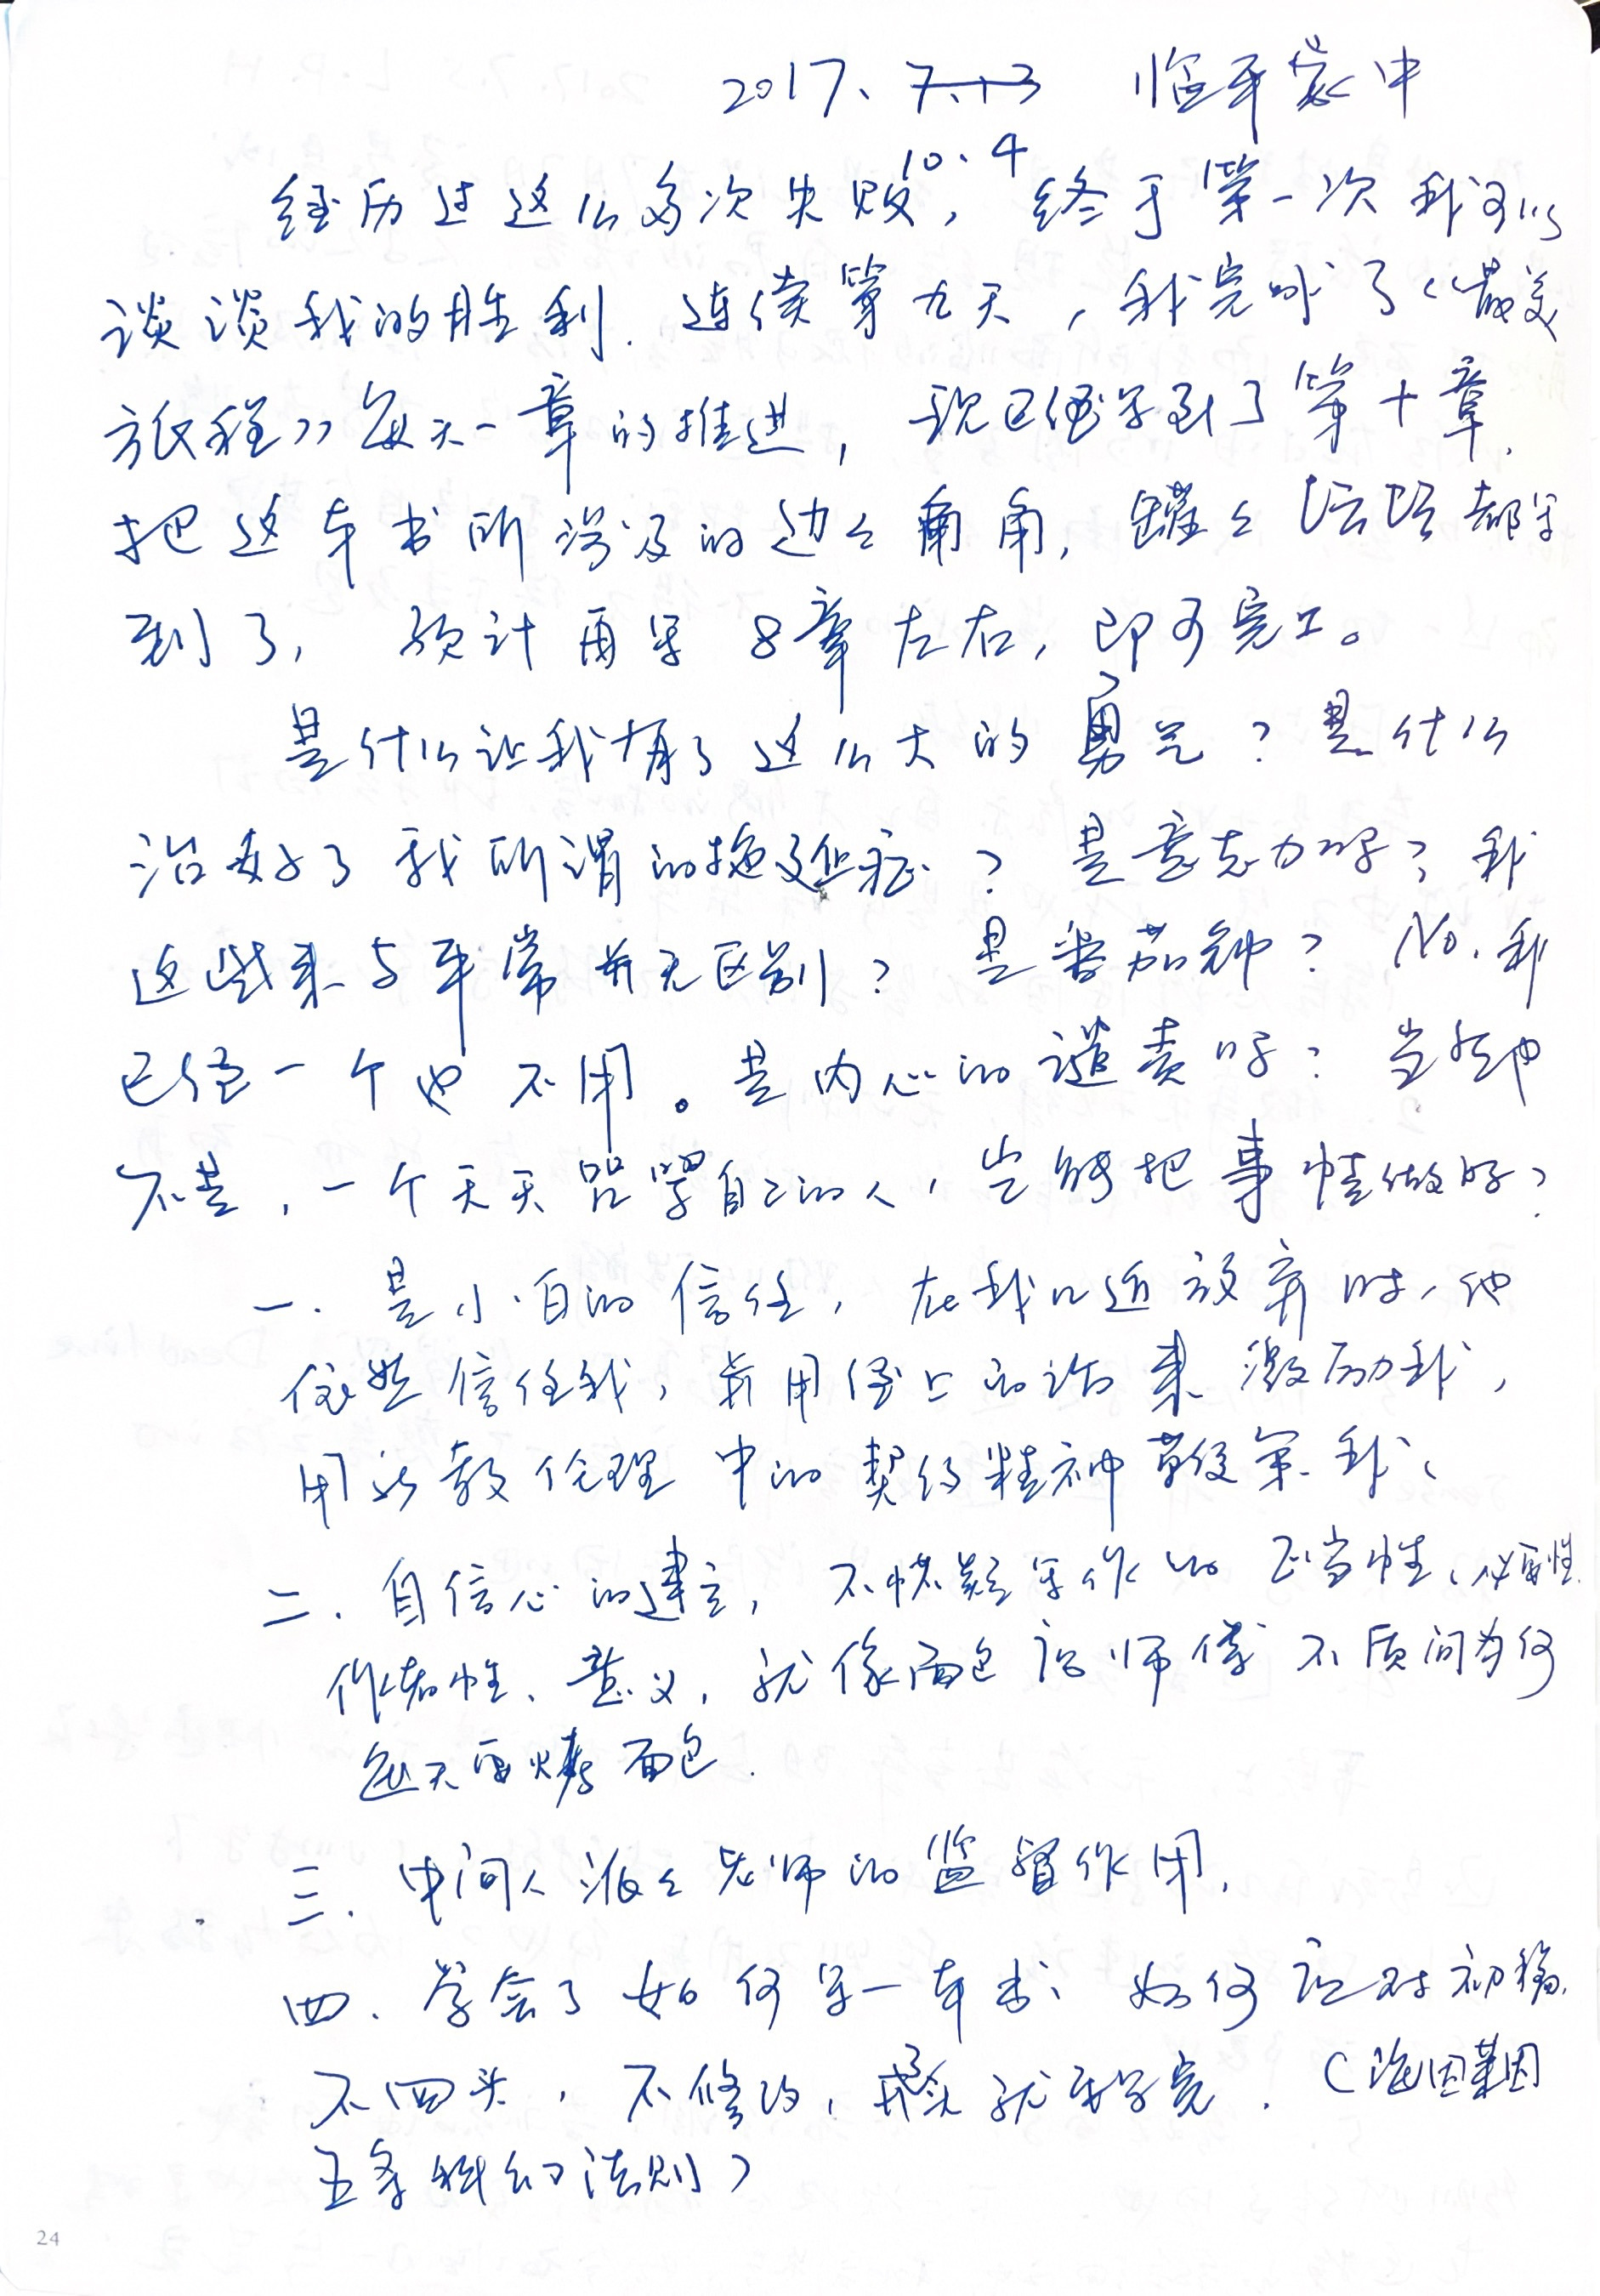 2017、7.13 临平家中
10、4
经历过这么多次失败，终于第一次我可以
谈谈我的胜利．连续第九天，我完成了《最美
旅程》每天一章的推进，现已经写到了第十章．
把这本书所涉及的边々角角，罐々坛坛都写
到了，预计再写8章左右，即可完工。
是什么让我有了这么大的勇气？是什么
治好了我所谓的拖延症？是意志力吗？我
这些来与平常并无区别？是番茄钟？No．我
已经一个也不用。是内心的谴责吗？当然也
不是，一个天天咒骂自己的人，岂能把事情做好？
一．是小白的信任，在我几近放弃时，他
依然信任我，并用经上的话来激励我，
用新教伦理中的契约精神来我、
二．自信心的建立，不怀疑写作的正当性、必要性．
作者性、意义，就像面包师傅不质问为何
每天要烤面包．
三．中间人派々老师的监督作用．
四、学会了如何写一本书、如何应对初稿．
不回头，不修改，就要写完．（海因莱因
五条科幻法则）
24